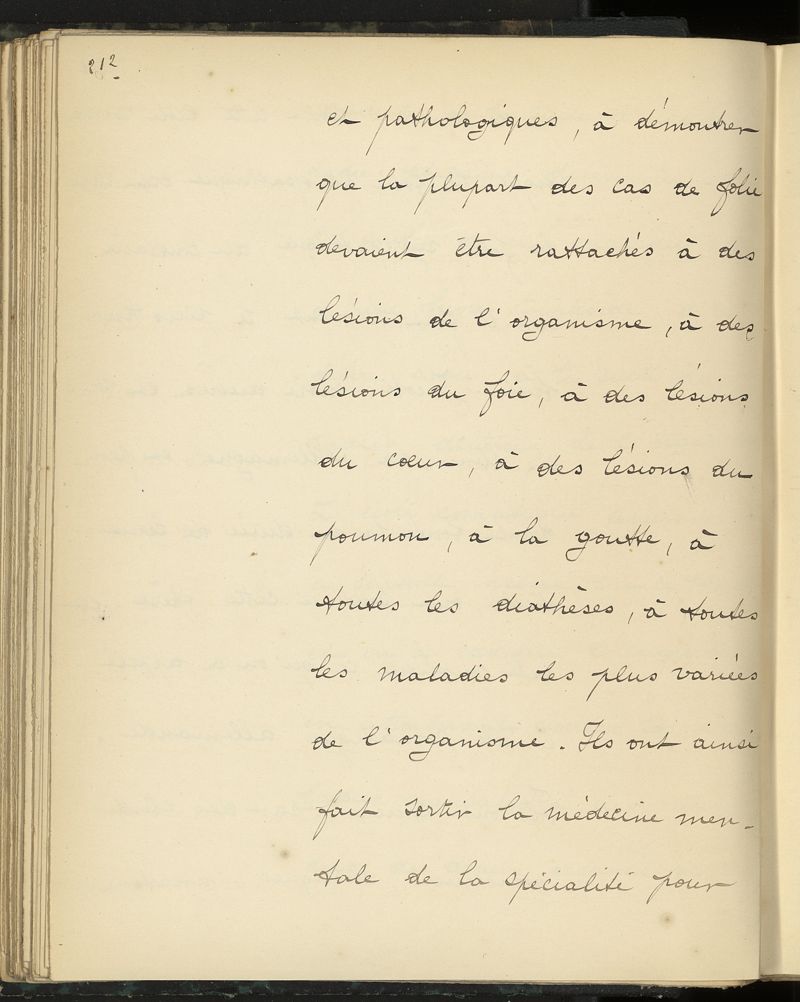 212
et pathologiques, à démontrer
que la plupart des cas de folie
devaient être rattachés à des
lésions de l'organisme, à des
lésions du foie, à des lésions
du cœur, à des lésions du
poumon, à la goutte, à
toutes les diathèses, à toutes
les maladies les plus variées
de l'organisme. Ils ont ainsi
fait sortir la médecine men-
tale de la spécialité pour